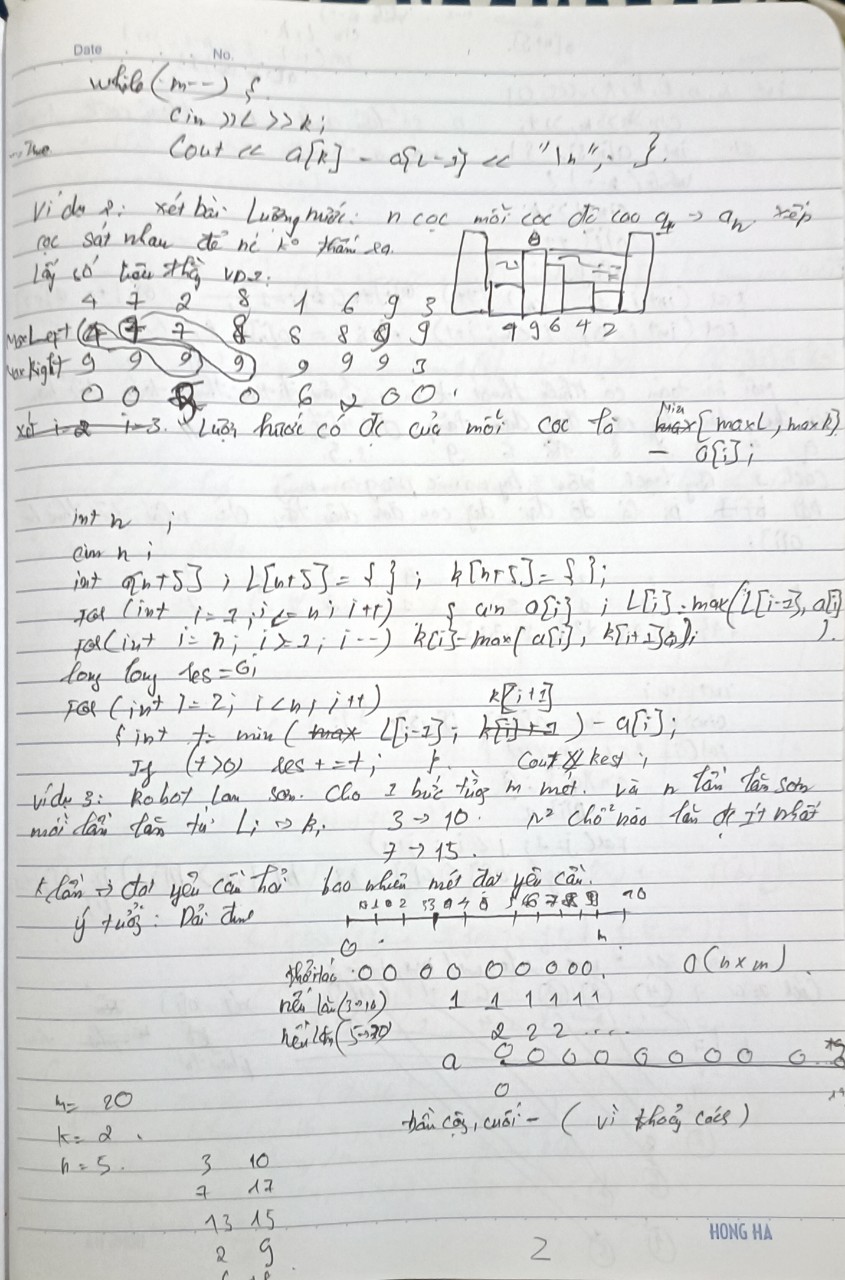 Date No.
while(m--) {
cin >> L >> k;
Cout << a[k] - a[L-1] << "\n"; }.
Ví dụ 2: xét bài Lượng nước: n cọc mỗi cọc độ cao a1 → an xếp
cọc sát nhau để nc ko thấm ra.
Lấy có VD2:
4 7 2 8 1 6 9 3
9 9 6 4 2
MaxLeft 4 7 7 8 8 8 9 9
MaxRight 9 9 9 9 9 9 9 3
0 0 5 0 6 2 0 0
xét i=2 i=3. Lượng nước có đc của mỗi cọc là max Min{maxL, maxR}
- a[i];
int n ;
cin n ;
int a[n+5] ; L[n+5] = { } ; k[n+5] = { };
For (int i=1; i<=n; i++) { cin a[i] ; L[i]=max(L[i-1], a[i])
}.
For(int i=n; i>=1; i--) k[i]=max(a[i], k[i+1]);
long long res=0;
For (int i=2; i<n; i++) k[i+1]
{ int t= min (max L[i-1]; k[i]+1) - a[i];
If (t>0) res+=t; }. Cout << res ;
Ví dụ 3: Robot lan sơn. Cho 1 bức tường m mét. và n lần lăn sơn
mỗi lần lăn từ Li → ki 3 → 10. chỗ nào lăn đc ít nhất
7 → 15.
k lần → đạt yêu cầu hỏi bao nhiêu mét đạt yêu cầu.
ý tưởng:
0 n 10
0 0 0 0 0 0 0 0 0. O(n×m).
nếu lăn(3→10) 1 1 1 1 1 1
nếu lăn(5→20) 2 2 2 ....
a 0 0 0 0 0 0 0 0
0
m= 20
đầu cộng, cuối - ( vì khoảng cách)
k= 2
n= 5. 3 10
7 17
13 15
2 9
2
HONG HA